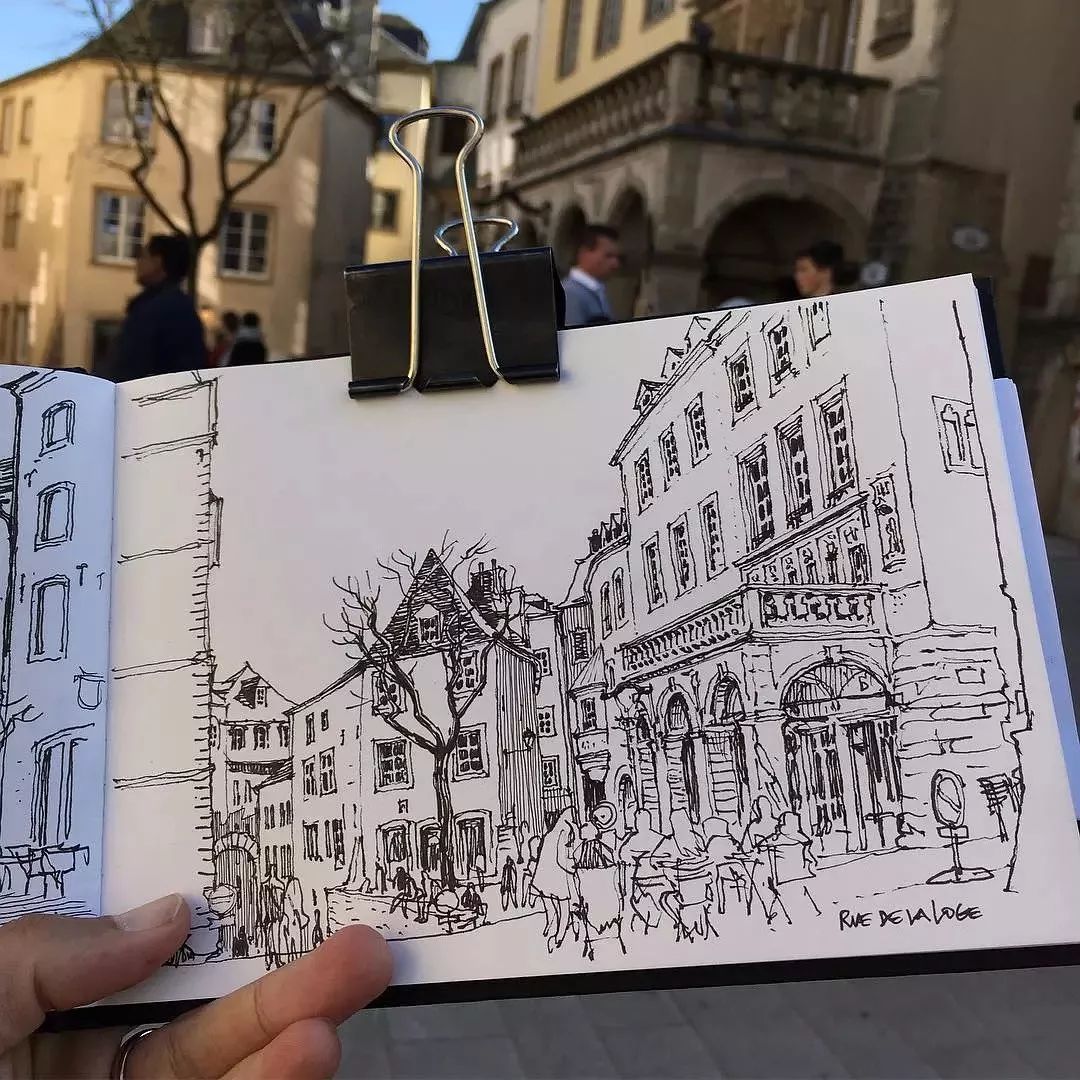 RUE DE LA LOGE